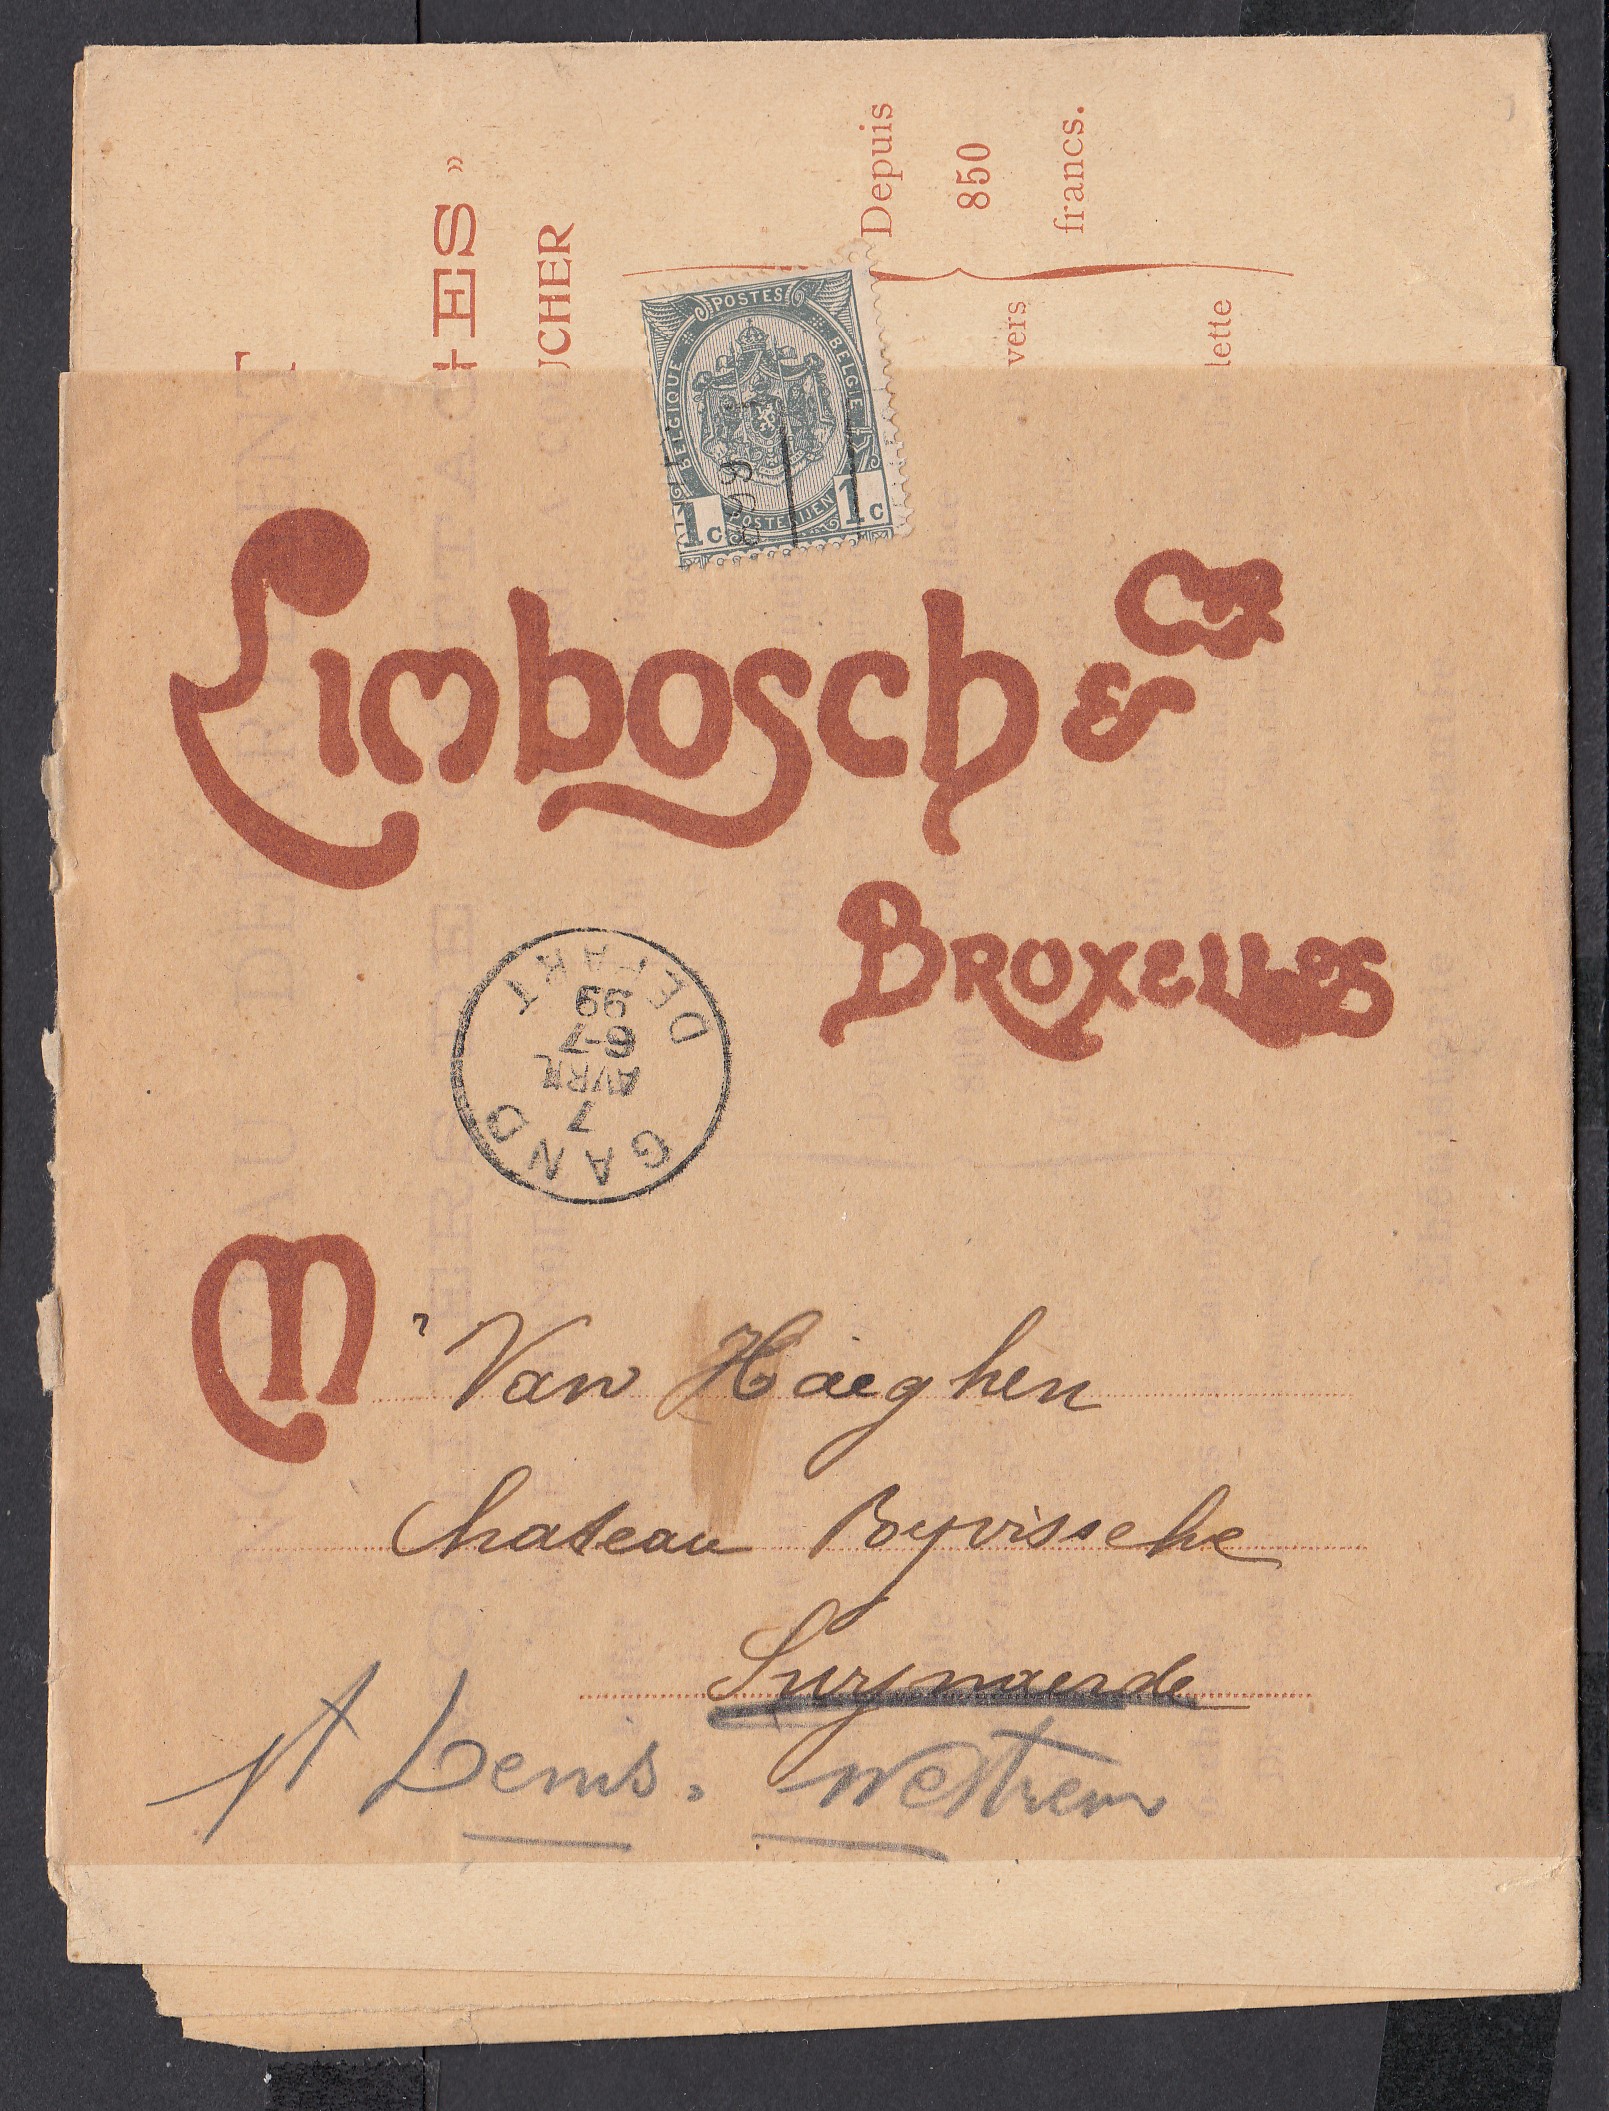 Depuis
850
francs.
ES »
UCHER
vers
lette
POSTES
BELGIQUE
BELGIE
POSTERIJEN
1c 1c
Limbosch & Cie
Bruxelles
GAND
7
AVRIL
6-7
99
DEPART
Mr Van Haeghen
Chateau Byvissche
Swynaerde
St Denis. Westrem